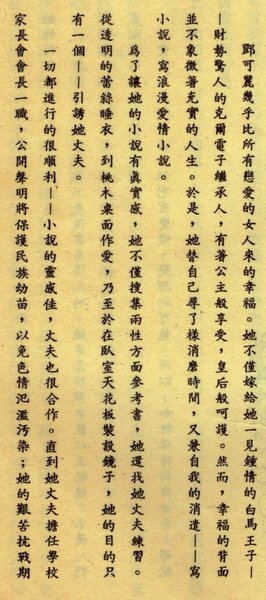 鄧可麗幾乎比所有戀愛的女人來的幸福。她不僅嫁給她一見鍾情的白馬王子—
—財勢驚人的克爾電子繼承人，有著公主般享受，皇后般呵護。然而，幸福的背面
並不象徵著充實的人生。於是，她替自己尋了樣消磨時間，又兼自我的消遣——寫
小說，寫浪漫愛情小說。
為了讓她的小說有真實感，她不僅搜集兩性方面參考書，她還找她丈夫練習。
從透明的蕾絲睡衣，到桃木桌面作愛，乃至於在臥室天花板裝設鏡子，她的目的只
有一個——引誘她丈夫。
一切都進行的很順利——小說的靈感佳，丈夫也很合作。直到她丈夫擔任學校
家長會會長一職，公開聲明將保護民族幼苗，以免色情氾濫污染；她的艱苦抗戰期